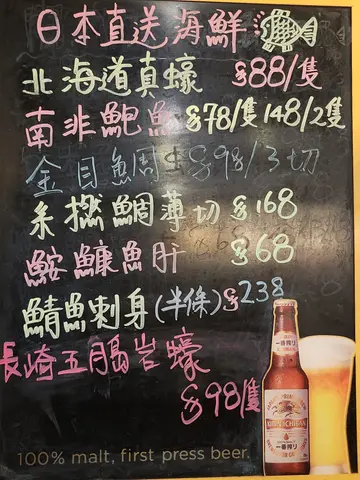 日本直送海鮮
北海道真蠔 $88/隻
南非鮑魚 $78/隻 148/2隻
金目鯛 $98/3切
朱撚鯛薄切 $168
鮟鱇魚肝 $68
鯖魚刺身(半條) $238
長崎五島岩蠔
$98/隻
一番搾り
KIRIN ICHIBAN
一番搾り
100% malt, first press beer.